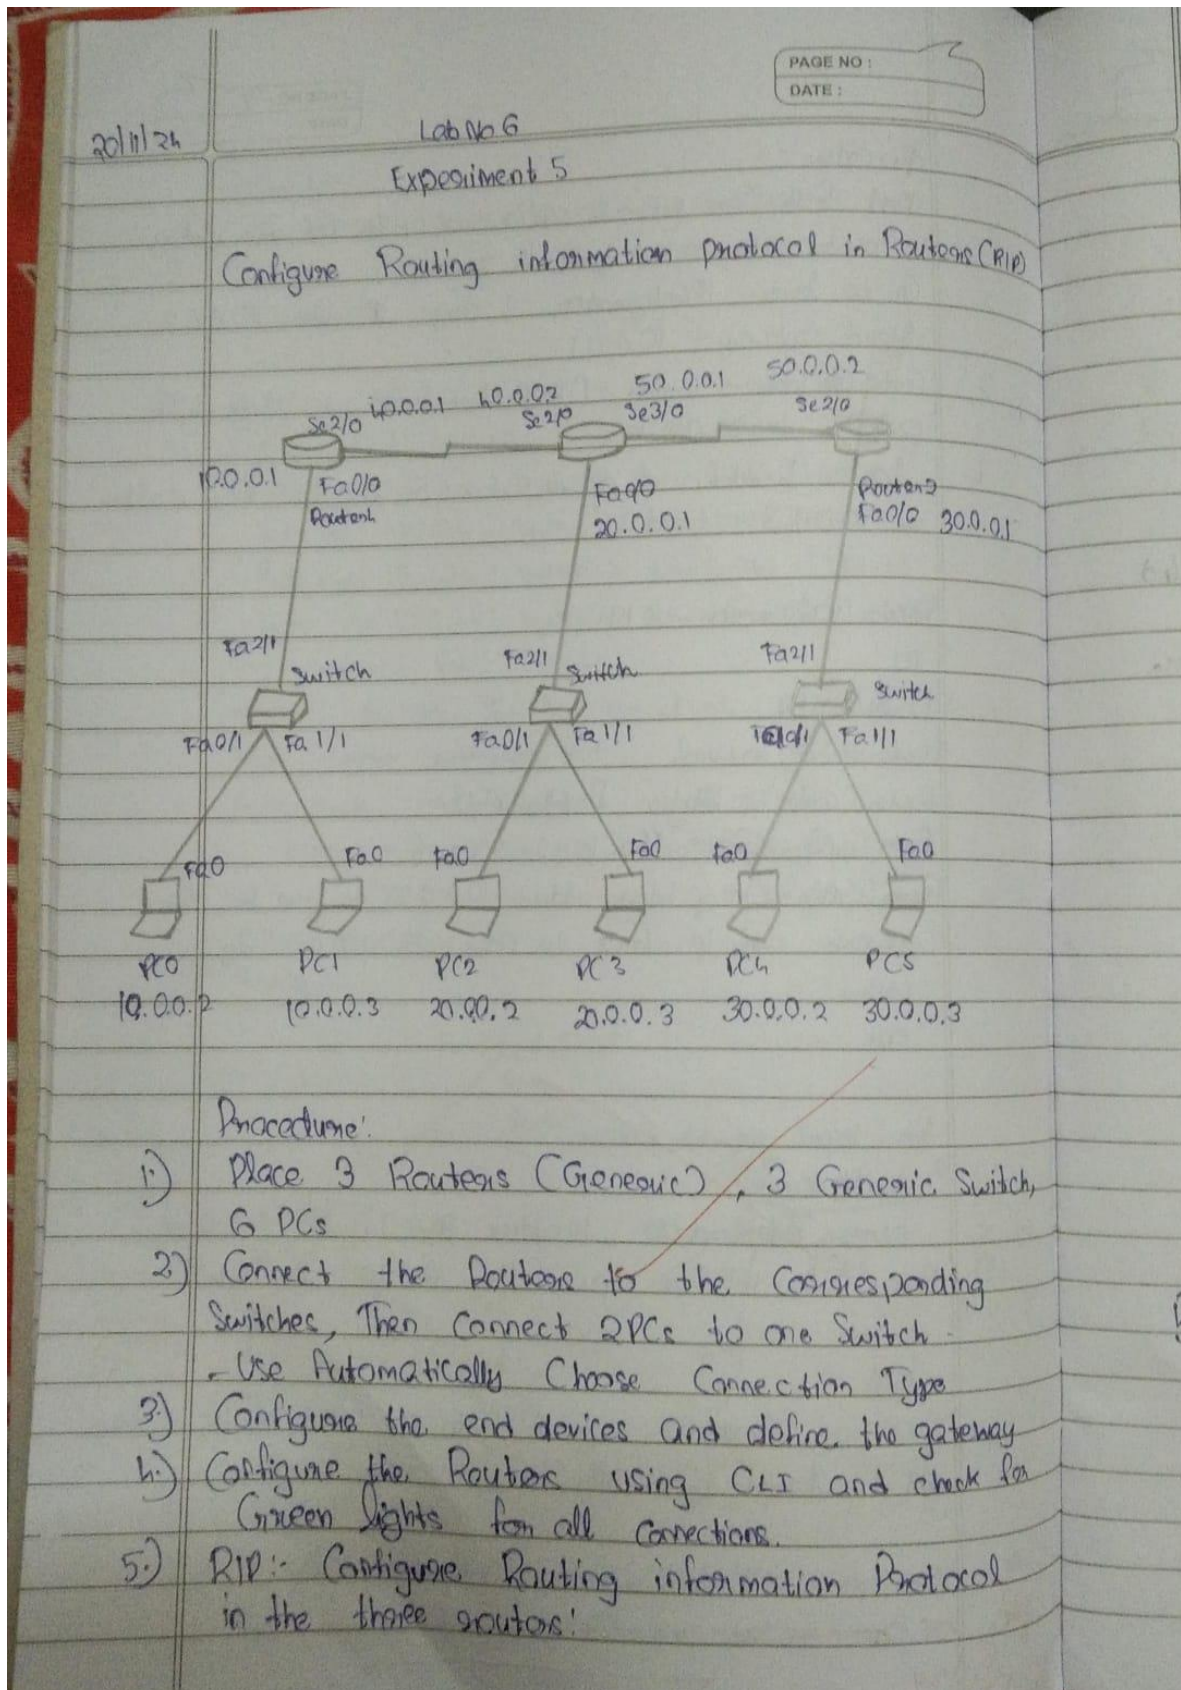 PAGE NO :
DATE :
20/11/24
Lab No 6
Experiment 5
Configure Routing information protocal in Routers (RIP)
40.0.0.1 40.0.0.2 50.0.0.1 50.0.0.2
Se2/0 Se2/0 Se3/0 Se2/0
10.0.0.1 Fa0/0 Fa0/0 Router
Router 20.0.0.1 Fa0/0 30.0.0.1
Fa2/1 Fa2/1 Fa2/1
Switch Switch Switch
Fa0/1 Fa1/1 Fa0/1 Fa1/1 Fa0/1 Fa1/1
Fa0 Fa0 Fa0 Fa0 Fa0 Fa0
PC0 PC1 PC2 PC3 PC4 PC5
10.0.0.2 10.0.0.3 20.0.0.2 20.0.0.3 30.0.0.2 30.0.0.3
Procedure:
1.) Place 3 Routers (Generic), 3 Generic Switch,
6 PCs
2.) Connect the Routers to the Corresponding
Switches, Then Connect 2PCs to one Switch
- Use Automatically Choose Connection Type
3.) Configure the end devices and define the gateway
4.) Configure the Routers using CLI and check for
Green lights for all connections.
5.) RIP:- Configure Routing information Protocol
in the three routors: